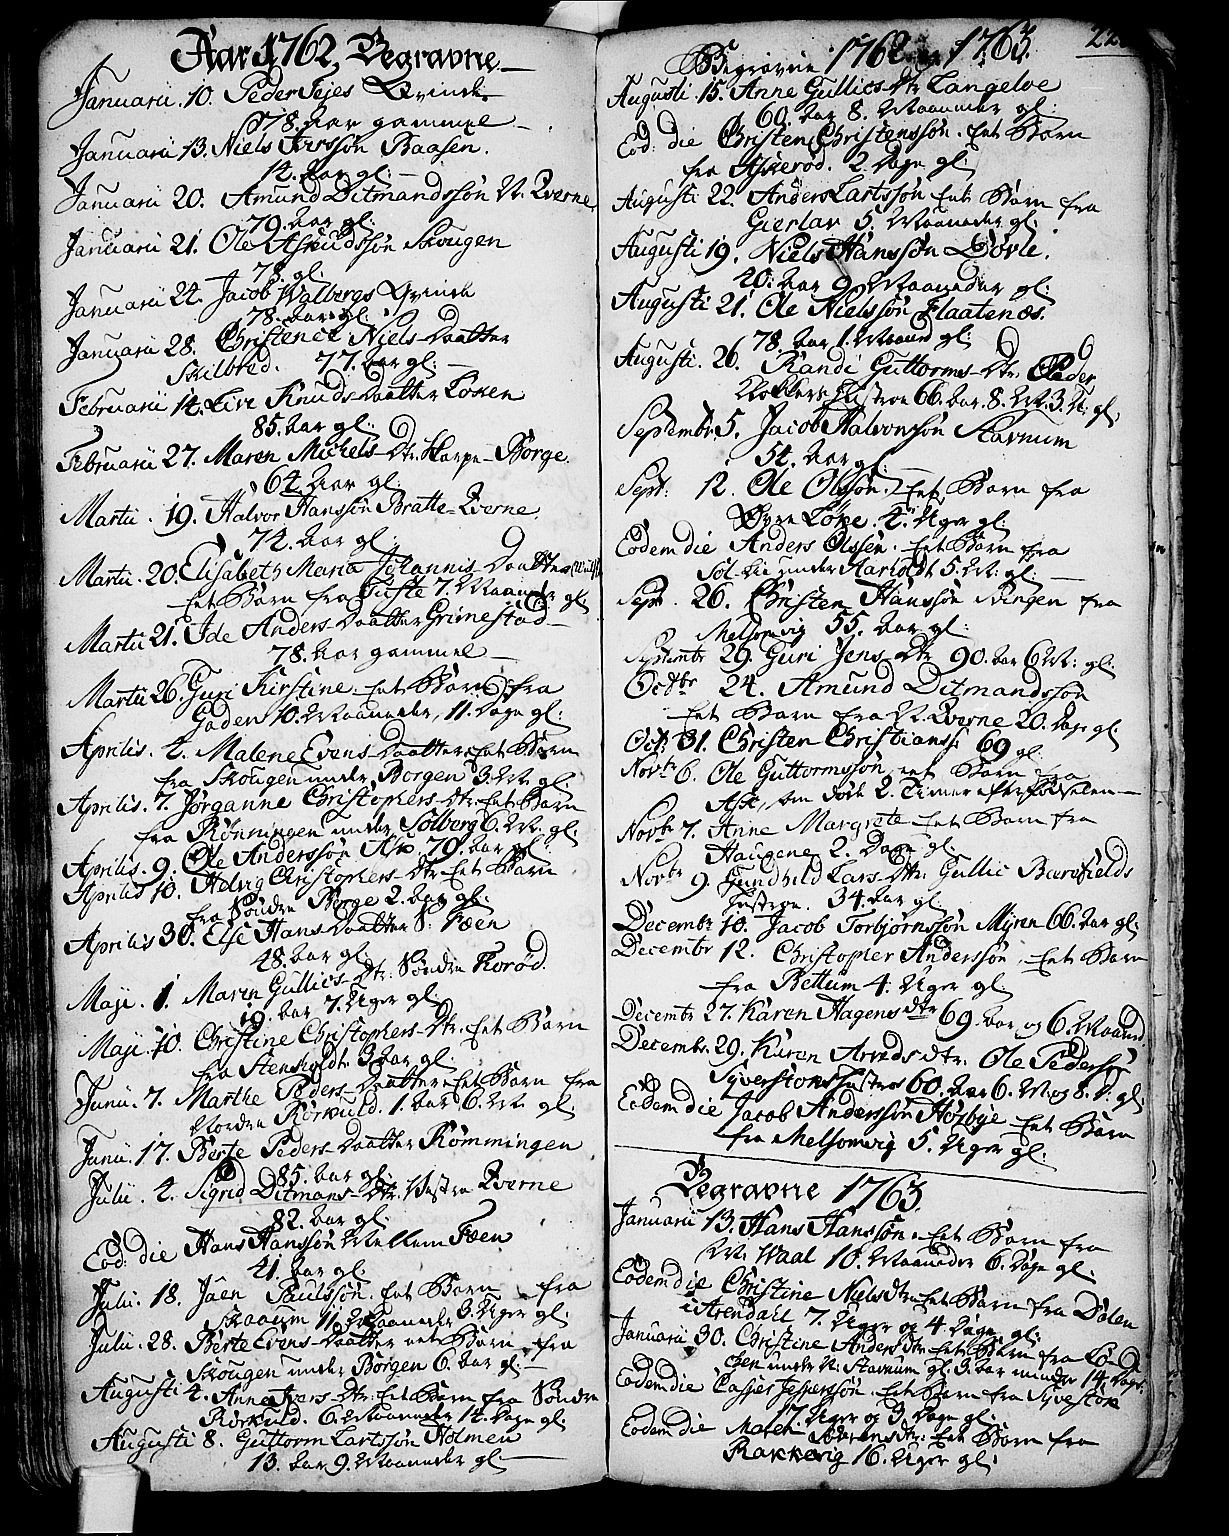 Aar 1762, Begravne
Januarii. 10. Peder Qvinde
78. Aar gammel
Januarii 13. Niels Baasen.
14. Aar gl:
Januarii 20. Amund Ditmandssøn V. Qverne
79. Aar gl:
Januarii 21. Ole Schougen
78. gl:
Januarii 24. Jacob Walbergs Qvinde
78. Aar gl:
Januarii 28. Christence Niels Daatter
77. Aar gl:
Februarii 14. Live Knuds Daatter
85. Aar gl:
Februarii 27. Maren Michels Dtr. Borge.
64. Aar gl:
Martii. 19. Halvor Hanssøn Bratte-Qverne.
74. Aar gl:
Martii. 20. Elisabeth Maria Johannis Daatter
Eet Barn fra 7. Maaneder gl
Martii 21. Ide Anders Daatter Grimestad
78. Aar gammel
Martii 26. Guri Kirstine. Eet Barn fra
Gaden 10. Maaneder, 11. Dage gl:
Aprilis. 4. Malene Evens Daatter Eet Barn
fra Skougen under Borgen 3. M. gl
Aprilis. 7. Jørganne Christophers Dtr. Eet Barn
fra Rønningen under Solberg 6. M. gl:
Aprilis. 9. Ole Anderssøn 79. Aar gl
Aprilis 10. Helvig Christophers Dtr. Eet Barn
fra Søndre Borge 2. Aar gl:
Aprilis 30. Else Hans Daatter S. Fæen
48. Aar gl.
Maji. 1. Maren Gullics Dtr. Søndre Rorød.
19. Aar 7. Uger gl
Maji. 10. Christine Christophers Dtr. Eet Barn
fra Stensholdt 3 Aar gl:
Junii. 7. Marthe Peders Daatter Eet Barn fra
Nordre Rørkuld. 1. Aar 6. M. gl
Junii. 17. Berte Peders Daatter Rømmingen
85. Aar gl:
Julii. 4. Sigrid Ditmans Dtr. Vestre Qverne
82. Aar gl:
Eod: die Hans Hanssøn Mellem Fæen
41. Aar gl:
Julii. 18. Jaen Paulssøn. Eet Barn fra
11. Maaneder 3. Uger gl:
Julii. 28. Berte Evens Daatter eet Barn fra
Skougen under Borgen 6. Aar gl:
Augusti 4. Anne Ivers Dtr. Eet Barn fra Søndre
Rørkuld. 6. Maaneder 14. Dage gl:
Augusti 8. Guttorm Lartssøn Holmen
13. Aar 9. Maaneder gl:
Begravne 1762 og 1763.
Augusti. 15. Anne Gullics Dtr Langeløe
60. Aar 8. Maaneder gl:
Eod: die Christen Christenssøn. Eet Barn
fra Askerød. 2. Dage gl:
Augusti 22. Anders Lartssøn Eet Barn fra
Gierløv 5. Maaneder gl:
Augusti 19. Niels Hanssøn Døvle.
40. Aar 9. Maaneder gl:
Augusti 21. Ole Nielssøn Flaatenæs.
78. Aar 1. Maaned gl:
Augusti. 26. Randi Guttorms Dtr. Peder
Hustroe 66. Aar. 8. M. 3. U. gl:
Septembr 5. Jacob Halvorssøn Stavnum
54. Aar gl:
Sept: 12. Ole Olssøn. Eet Barn fra
Øvre 4. Uger gl:
Eodem die Anders Olssen. Eet Barn fra
under 5. M. gl:
Sept. 26. Christen Hanssøn Svingen fra
Melsomvig 55. Aar gl:
Septembr 29. Guri Jens Dtr 90. Aar 6 M: gl:
Octobr 24. Amund Ditmandssøn
Eet Barn fra V. Qverne 20. Dage gl
Oct. 31. Christen Christianss: 69 gl:
Novbr 6. Ole Guttormssøn eet Barn fra
Ask, som døde 2. Timer efter Fødselen
Novbr 7. Anne Margrete Eet Barn fra
Haugene 2. Dage gl:
Novbr 9. Gundhild Lars Dtr. Gullic Barefields
Hustroe. 34. Aar gl:
Decembr 10. Jacob Torbjørnssøn Myren 66. Aar gl:
Decembr 12. Christopher Anderssøn Eet Barn
fra Bettum 4. Uger gl:
Decembr 27. Karen Hagens Dtr 69. Aar og 6. Maaned
Decembr. 29. Karen Arveds Dtr. Ole Pederssøn
Syverstøens Hustroe 60. Aar 6. M. og 8. D. gl
Eodem die Jacob Anderssøn Høsbye Eet Barn
fra Melsomvig 5. Uger gl:
Begravne 1763.
Januarii 13. Hans Hanssøn. Eet Barn fra
V. Waal 10. Maaneder 6. Dage gl:
Eodem die Christine Niels Dtr Eet Barn fra Dalen
i Arendall 7. Uger og 4 Dage gl:
Januarii 30. Christine Anders Dtr Eet Barn fra
under N. Stavnum gl: 3. Aar minder 14. Dage.
Eodem die Casper Jesperssøn. Eet Barn fra Syvestøe
17. Uger og 3. Dage gl:
Eodem die Maren Sørens Dtr: Eet Barn fra
Rakkevig 16. Uger gl: